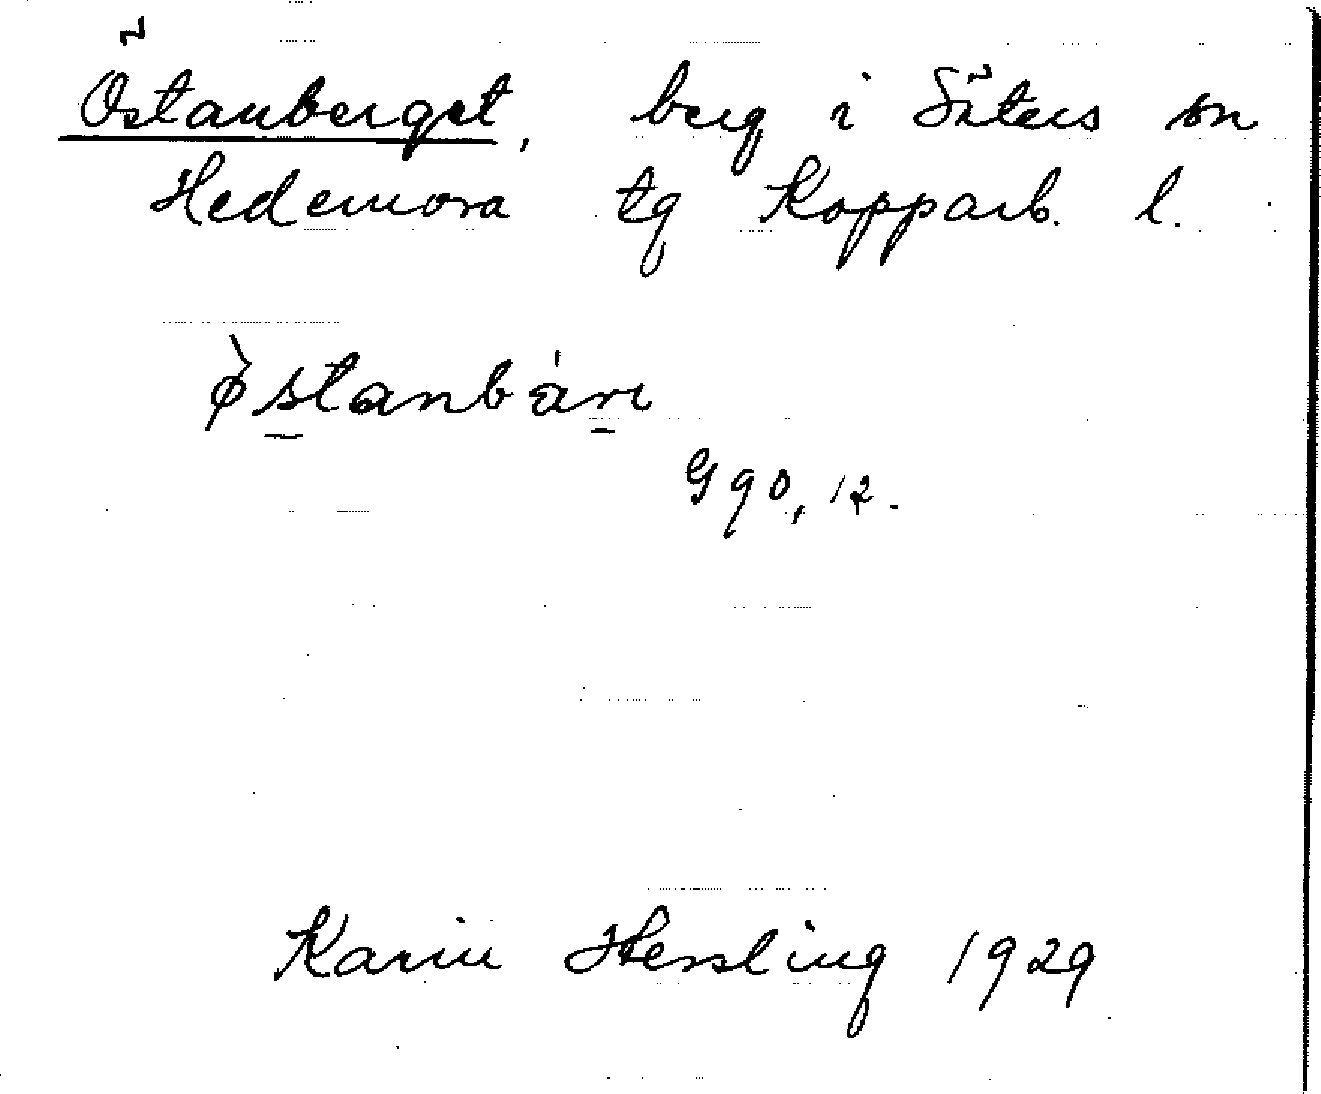 Östanberget, berg i Säters sn
Hedemora tg Kopparb. l.
G 90, 12.
Karin Hessling 1929